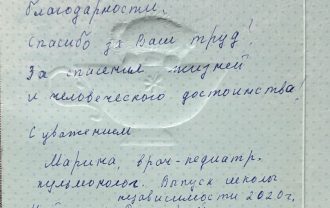 благодарности.
Спасибо за Ваш труд!
За спасения жизней
и человеческого достоинства!
С уважением
Марина, врач-педиатр.
пульмонолог. Выпуск школы
независимости 2020г.